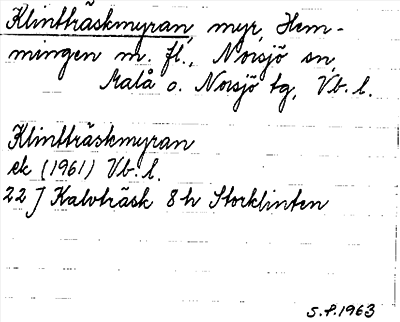 Klintträskmyran, myr, Hem-
mingen m. fl., Norsjö sn,
Malå o. Norsjö tg, Vb. l.
Klintträskmyran
ek (1961) Vb. l.
22 J Kalvträsk 8 h Storklinten
S.P. 1963